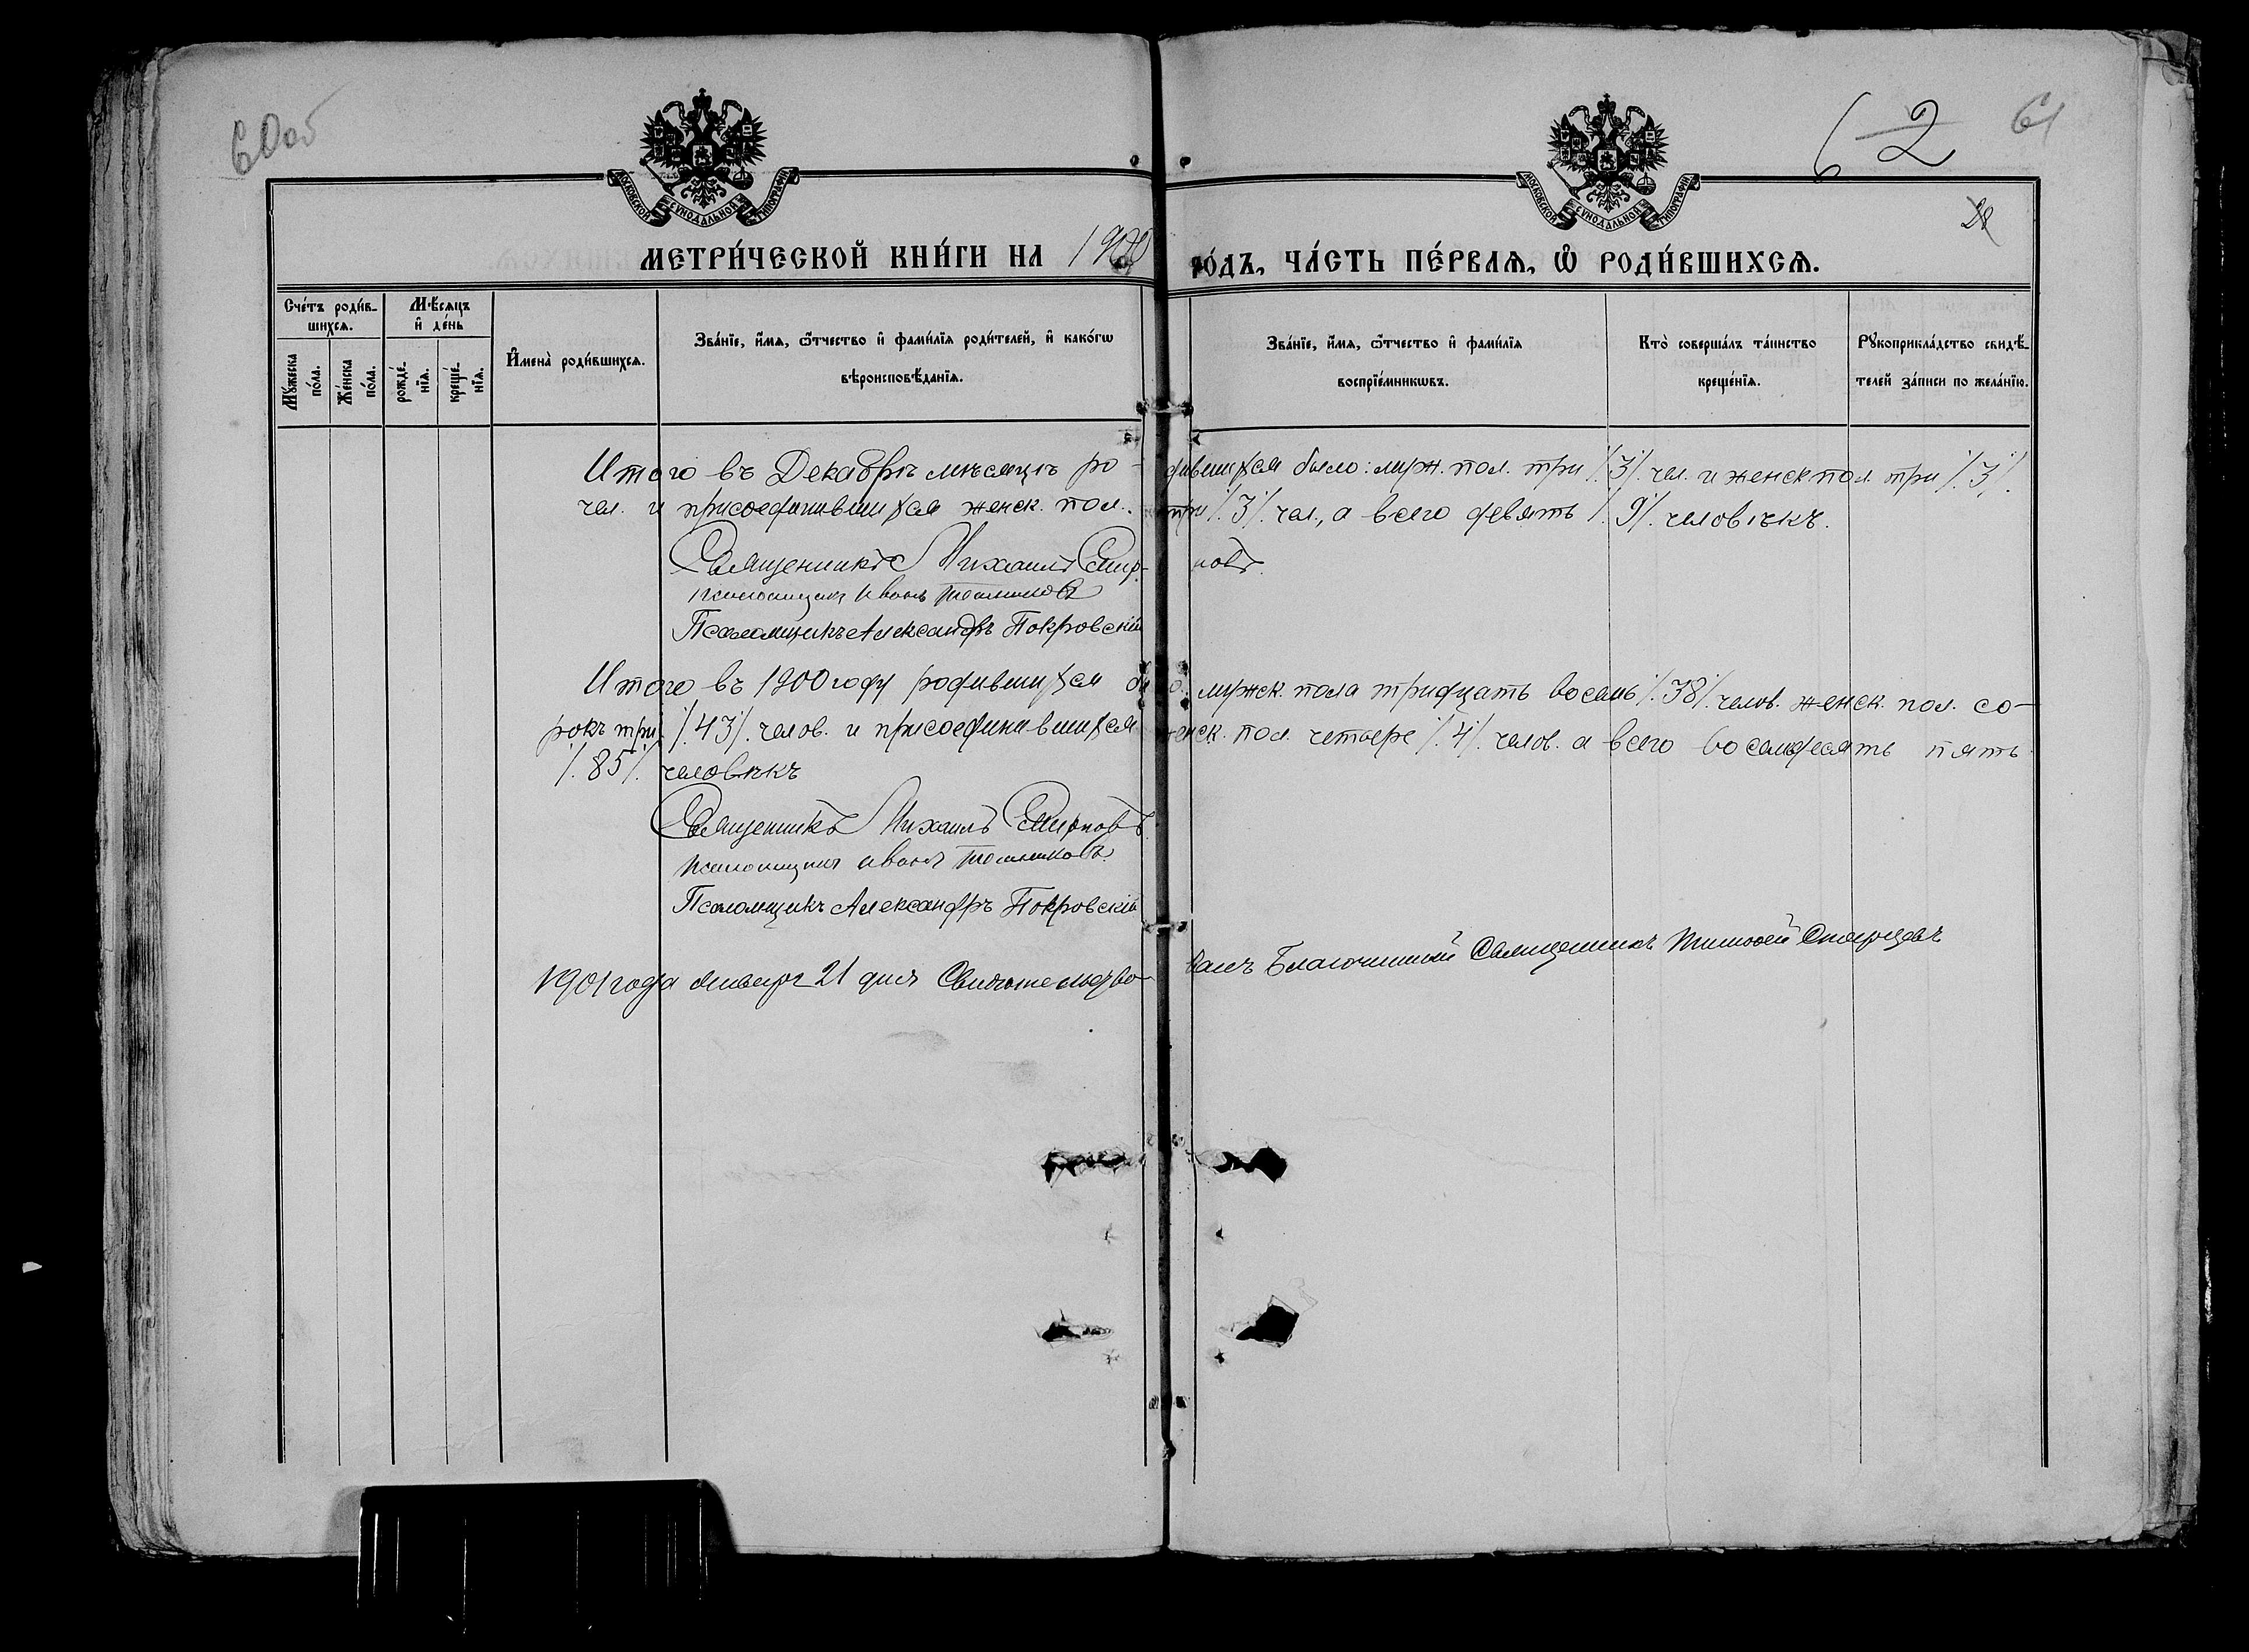 60об
6 2
61
МОСКОВСКОЙ СѴНОДАЛЬНОЙ ТИПОГРАФІИ
МОСКОВСКОЙ СѴНОДАЛЬНОЙ ТИПОГРАФІИ
МЕТРИ́ЧЕСКОЙ КНИ́ГИ НА 1900 ГО́ДЪ, ЧА́СТЬ ПЕ́РВАѦ, Ѽ РОДИ́ВШИХСѦ.
Сче́тъ роди́в-
шихсѧ.
Мꙋ́жеска по́ла.
Же́нска по́ла.
Мѣ́сѧцъ
и҆ де́нь
рожде́нїѧ.
креще́нїѧ.
И҆мена̀ роди́вшихсѧ.
Зва́нїе, и҆́мѧ, ѻ҆́тчество и҆ фами́лїѧ роди́телей, и҆ како́гѡ
вѣроисповѣ́данїѧ.
Зва́нїе, и҆́мѧ, ѻ҆́тчество и҆ фами́лїѧ
воспрїе́мникѡвъ.
Кто̀ соверша́лъ та́инство
креще́нїѧ.
Рꙋкоприкла́дство свидѣ́-
телей за́писи по жела́нїю.
Итого въ Декабрѣ мѣсяцѣ ро- дившихся было: муж. пол. три /.3/. чел. и женск пол. три /.3/.
чел. и присоединившихся женск. пол. три /.3/. чел., а всего девять /.9/. человѣкъ.
Священникъ Михаилъ Смир- новъ.
Псаломщикъ Иванъ
Псаломщикъ Александръ Покровскій
Итого въ 1900 году родившихся было: мужск. пола тридцать восемь /.38/. челов. женск. пол. со-
рокъ три /.43/. челов. и присоединившихся женск. пол. четыре /.4/. челов. а всего восемьдесять пять
/.85/. человѣкъ
Священникъ Михаилъ Смирновъ.
Псаломщикъ Иванъ
Псаломщикъ Александръ Покровскій
1901 года Января 21 дня Свидѣтельство- валъ Благочинный Священникъ